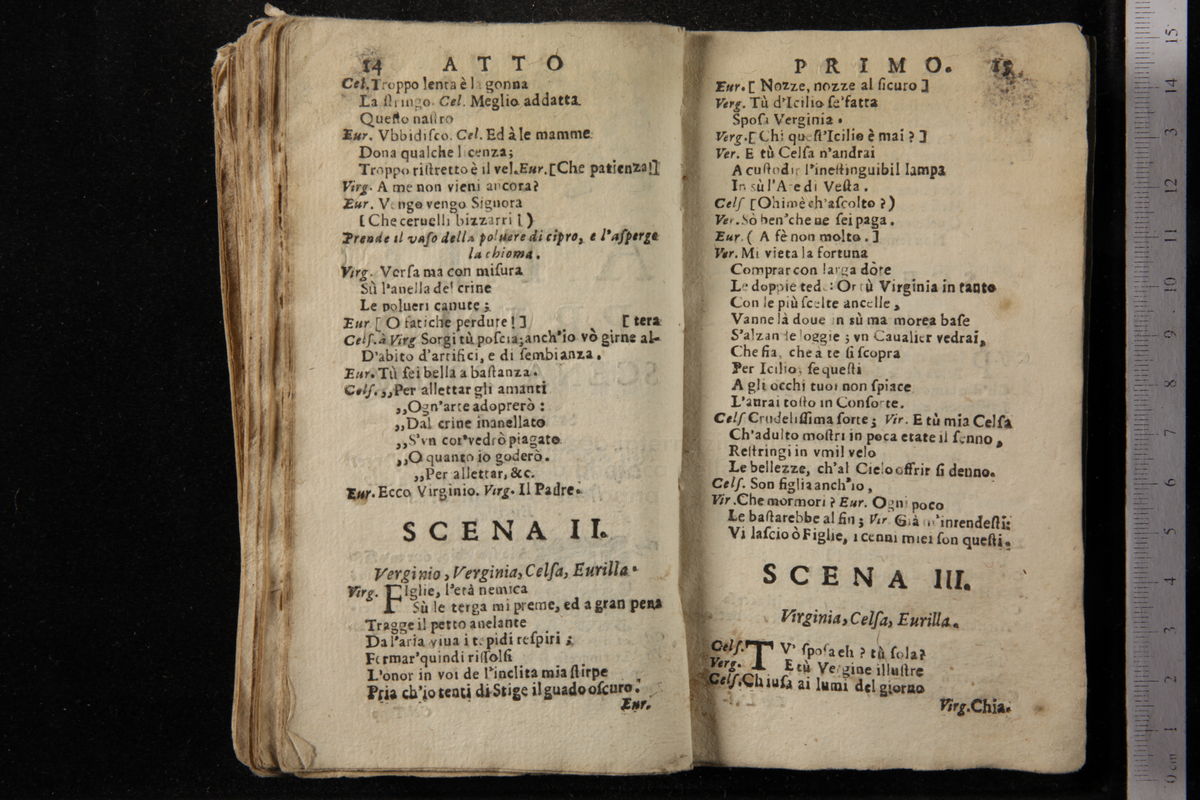 14 ATTO
Cel. Troppo lenta è la gonna
La stringo. Cel. Meglio addatta
Questo nastro
Eur. Vbbidisco. Cel. Ed à le mamme
Dona qualche licenza;
Troppo ristretto è il vel. Eur. [Che patienza!]
Virg. A me non vieni ancora?
Eur. Vengo vengo Signora
[Che ceruelli bizzarri!)
Prende il vaso della poluere di cipro, e l'asperge
la chioma.
Virg. Versa ma con misura
Sù l'anella del crine
Le polueri canute;
Eur [O fatiche perdute!] [tera
Cels. à Virg Sorgi tù poscia; anch'io vò girne al-
D'abito d'artifici, e di sembianza.
Eur. Tù sei bella a bastanza.
Cels. ,,Per allettar gli amanti
,,Ogn'arte adoprerò:
,,Dal crine inanellato
,,S'vn cor vedrò piagato
,,O quanto io goderò.
,,Per allettar, &c.
Eur. Ecco Virginio. Virg. Il Padre.
SCENA II.
Verginio, Verginia, Celsa, Eurilla.
Virg. FIglie, l'età nemica
Sù le terga mi preme, ed a gran pena
Tragge il petto anelante
Da l'aria viua i tepidi respiri;
Fermar'quindi rissolsi
L'onor in voi de l'inclita mia stirpe
Pria ch'io tenti di Stige il guado oscuro.
Eur.
PRIMO. 15
Eur. [Nozze, nozze al sicuro]
Verg. Tù d'Icilio se'fatta
Sposa Verginia.
Verg. [Chi quest'Icilio è mai?]
Ver. E tù Celsa n'andrai
A custodir l'inestinguibil lampa
In sù l'Are di Vesta.
Cels [Ohimè ch'ascolto?)
Ver. Sò ben'che ne sei paga.
Eur. (A fè non molto.]
Ver. Mi vieta la fortuna
Comprar con larga dòte
Le doppie tede: Or tù Virginia in tanto
Con le più scelte ancelle,
Vanne là doue in sù marmorea base
S'alzan le loggie; vn Caualier vedrai,
Che fia, che a te si scopra
Per Icilio, se questi
A gli occhi tuoi non spiace
L'aurai tosto in Consorte.
Cels Crudelissima sorte; Vir. E tù mia Celsa
Ch'adulto mostri in poca etate il senno,
Restringi in vmil velo
Le bellezze, ch'al Cielo offrir si denno.
Cels. Son figlia anch'io,
Vir. Che mormori? Eur. Ogni poco
Le bastarebbe al fin; Vir. Già m'intendesti:
Vi lascio ò Figlie, i cenni miei son questi.
SCENA III.
Virginia, Celsa, Eurilla.
Cels. TV' sposa eh? tù sola?
Verg. E tù Vergine illustre
Cels. Chiusa ai lumi del giorno
Virg. Chia.